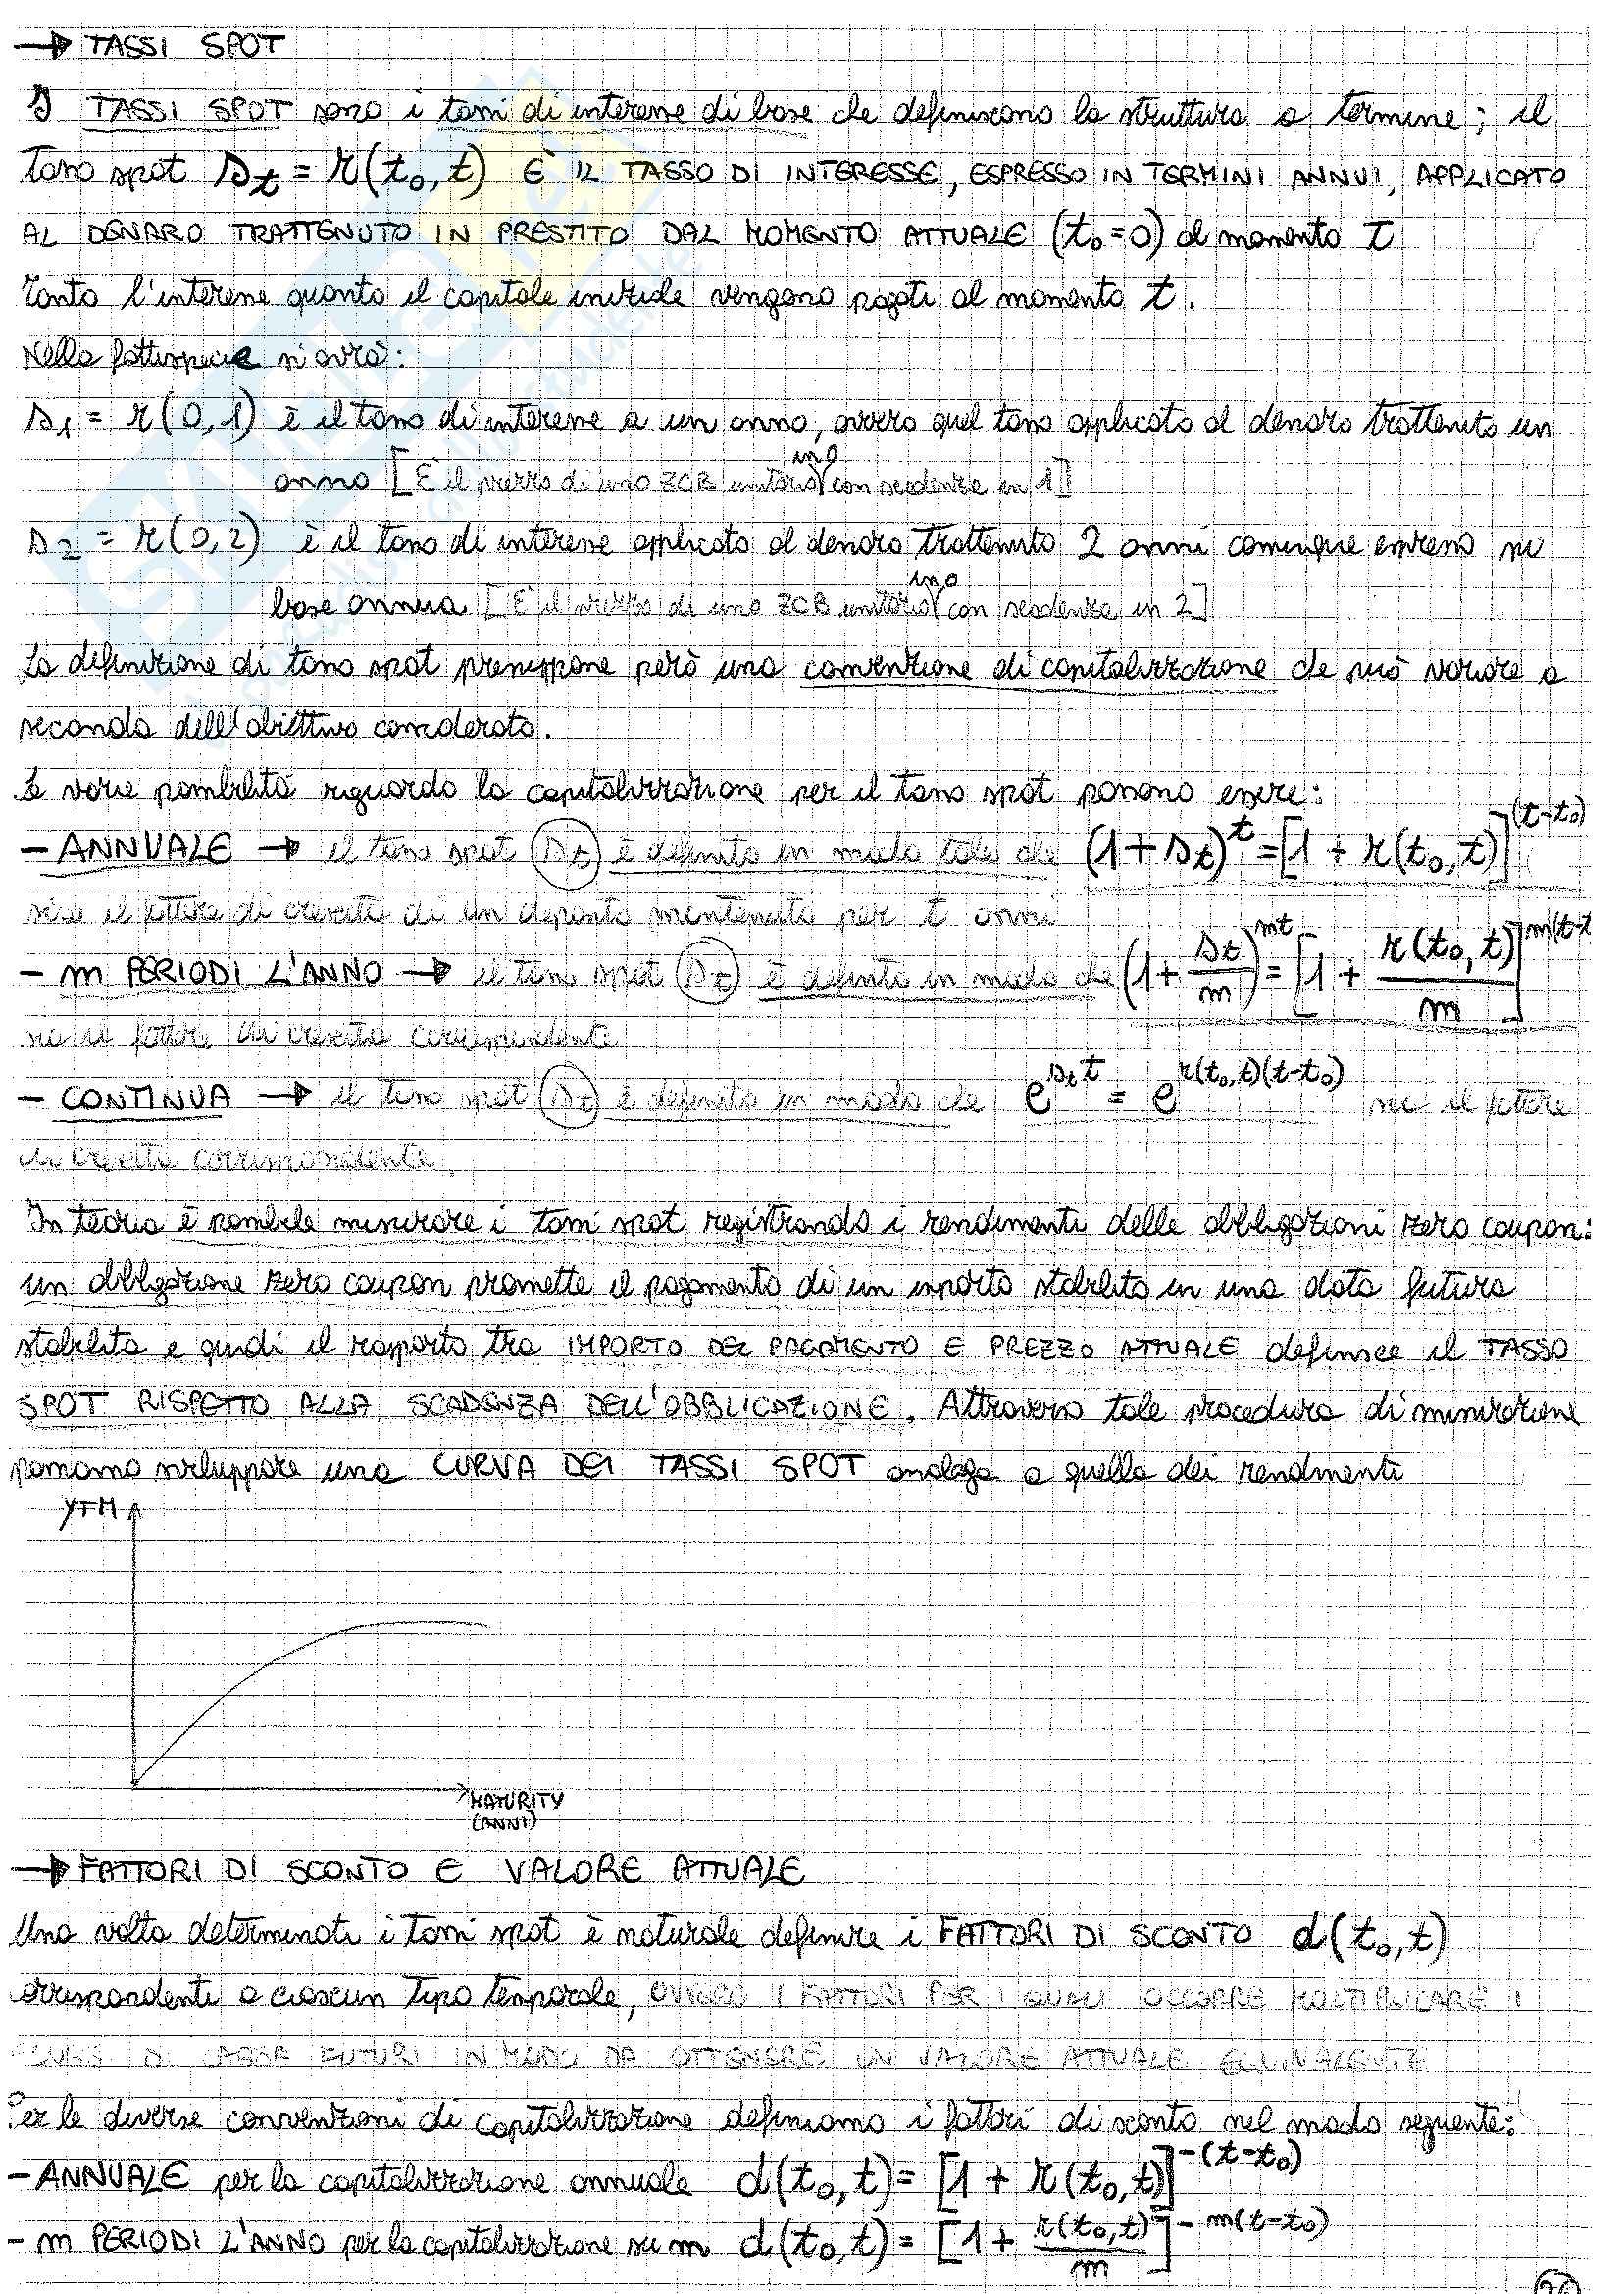 → TASSI SPOT
I TASSI SPOT sono i tassi di interesse di base che definiscono la struttura a termine; il
tasso spot s_t = r(t₀, t) È IL TASSO DI INTERESSE, ESPRESSO IN TERMINI ANNUI, APPLICATO
AL DENARO TRATTENUTO IN PRESTITO DAL MOMENTO ATTUALE (t₀=0) al momento t
Tanto l'interesse quanto il capitale iniziale vengono pagati al momento t.
Nella fattispecie si avrà:
s₁ = r(0,1) è il tasso di interesse a un anno, ovvero quel tasso applicato al denaro trattenuto un
anno [È il prezzo di uno ZCB unitario in 0 con scadenza in 1]
s₂ = r(0,2) è il tasso di interesse applicato al denaro trattenuto 2 anni comunque espresso su
base annua [È il prezzo di uno ZCB unitario in 0 con scadenza in 2]
La definizione di tasso spot presuppone però una convenzione di capitalizzazione che può variare a
seconda dell'obiettivo considerato.
Le varie possibilità riguardo la capitalizzazione per il tasso spot possono essere:
- ANNUALE → il tasso spot s_t è definito in modo tale che (1+s_t)^t = [1 + r(t₀,t)]^(t-t₀)
sia il fattore di crescita di un deposito mantenuto per t anni
- m PERIODI L'ANNO → il tasso spot s_t è definito in modo che (1 + s_t/m)^mt = [1 + r(t₀,t)/m]^m(t-t
sia il fattore di crescita corrispondente
- CONTINUA → il tasso spot s_t è definito in modo che e^(s_t t) = e^(r(t₀,t)(t-t₀)) sia il fattore
di crescita corrispondente.
In teoria è possibile misurare i tassi spot registrando i rendimenti delle obbligazioni zero coupon:
un obbligazione zero coupon promette il pagamento di un importo stabilito in una data futura
stabilita e quindi il rapporto tra IMPORTO DEL PAGAMENTO E PREZZO ATTUALE definisce il TASSO
SPOT RISPETTO ALLA SCADENZA DELL'OBBLICAZIONE. Attraverso tale procedura di misurazione
possiamo sviluppare una CURVA DEI TASSI SPOT analoga a quella dei rendimenti
YTM
MATURITY
(ANNI)
→ FATTORI DI SCONTO E VALORE ATTUALE
Una volta determinati i tassi spot è naturale definire i FATTORI DI SCONTO d(t₀,t)
orrispondenti a ciascun tipo temporale, OVVERO I FATTORI PER I QUALI OCCORRE MOLTIPLICARE I
FLUSSI DI CASSA FUTURI IN MODO DA OTTENERE UN VALORE ATTUALE EQUIVALENTE
Per le diverse convenzioni di capitalizzazione definiamo i fattori di sconto nel modo seguente:
- ANNUALE per la capitalizzazione annuale d(t₀,t) = [1 + r(t₀,t)]^-(t-t₀)
- m PERIODI L'ANNO per la capitalizzazione su m d(t₀,t) = [1 + r(t₀,t)/m]^-m(t-t₀)